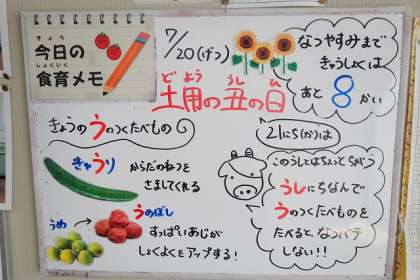 きょう
今日の
しょくいく
食育メモ
7/20(げつ)
なつやすみまで
きゅうしょくは
あと 8 かい
どよう うし ひ
土用の丑の日
きょうのうのつくたべもの
21にち(か)は
きゅうり
からだのねつを
さましてくれる
うめ
うめぼし
すっぱいあじが
しょくよくをアップする!
このうしとはちょっとちがう
うしにちなんで
うのつくたべものを
たべると、なつバテ
しない!!